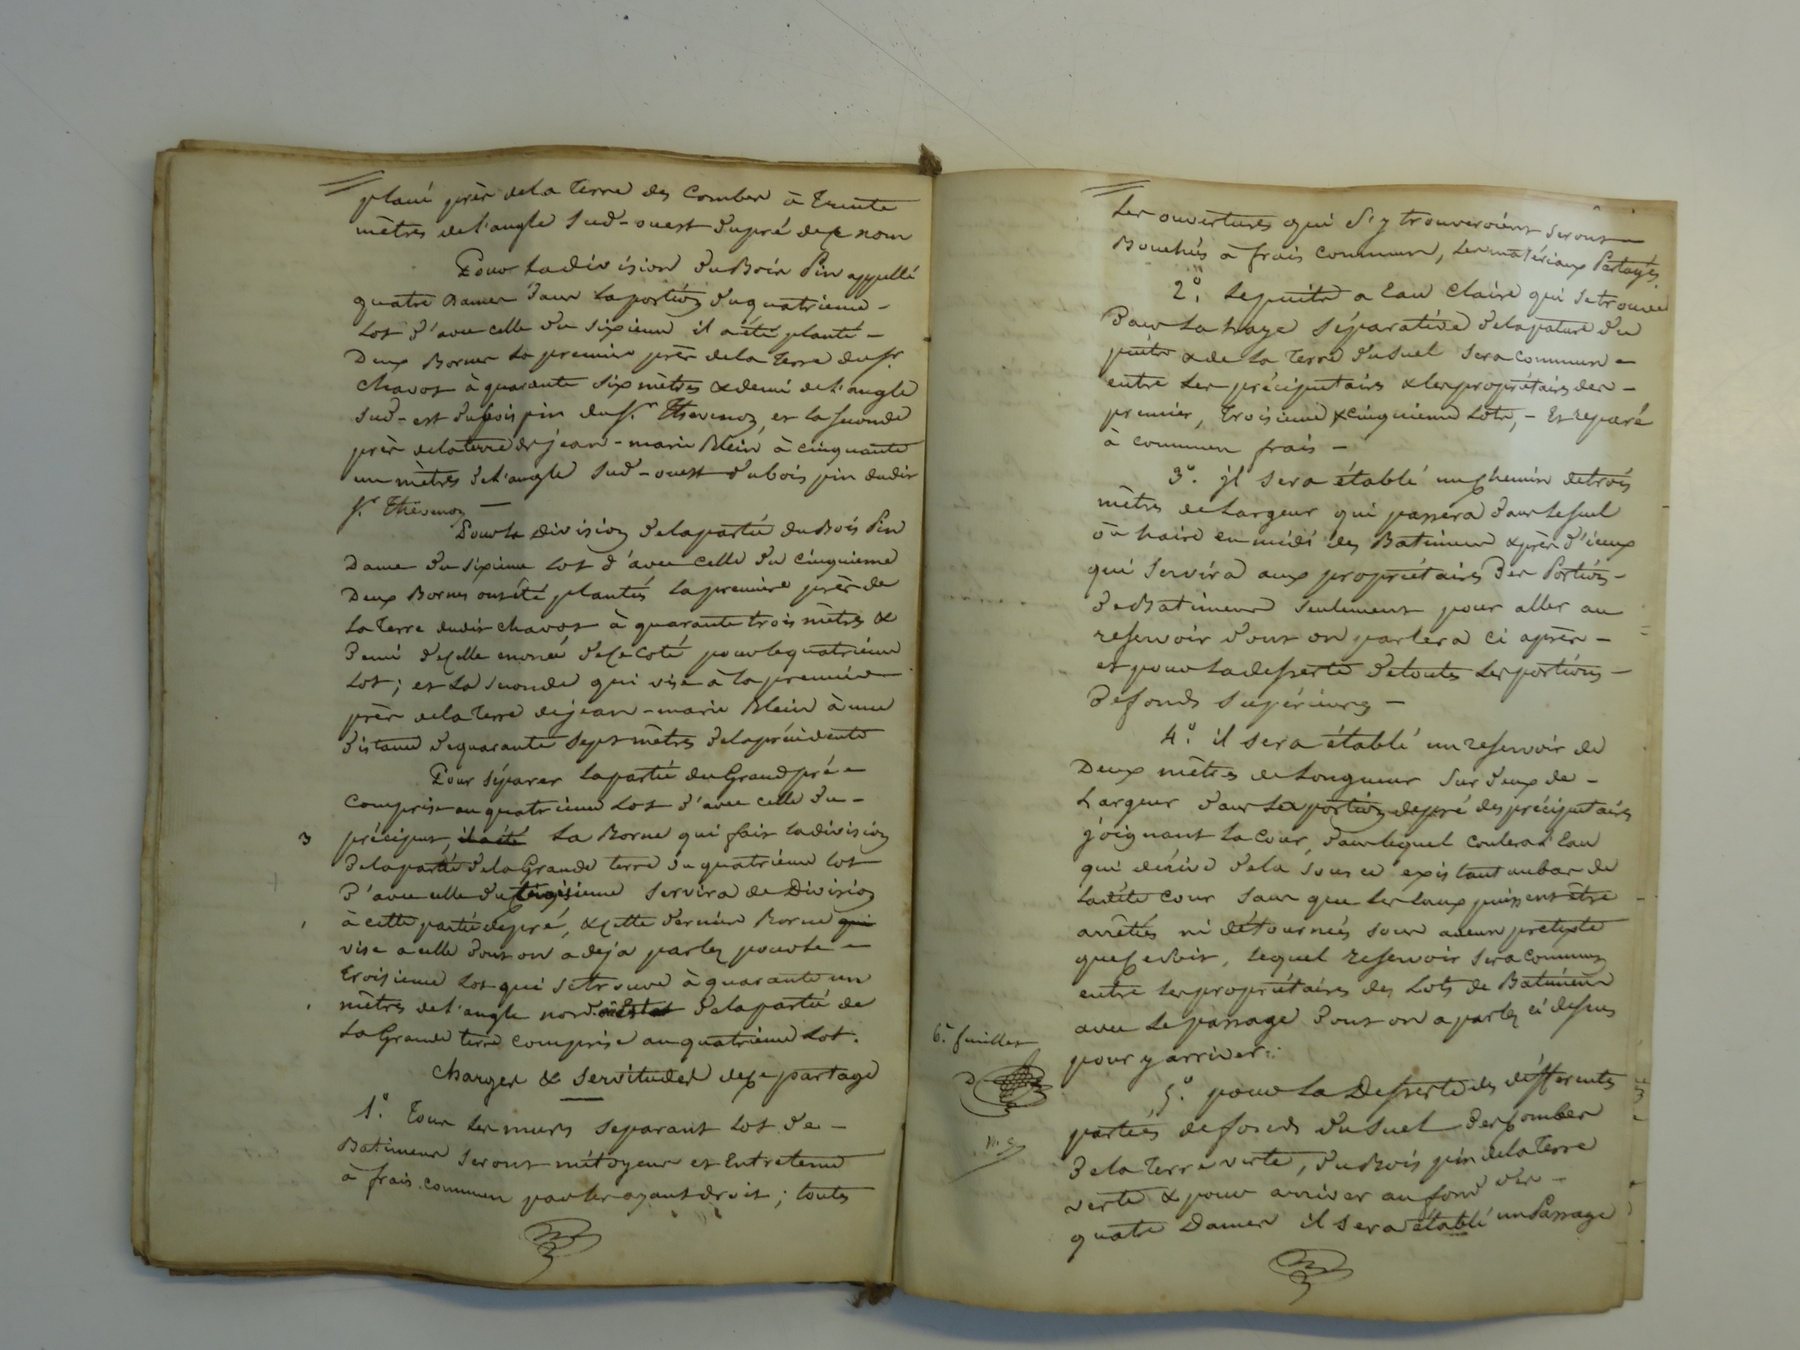 placé près de la terre des Combes à Trente
mètres de l'angle Sud-ouest du pré de ce nom
Pour la division du Bois Pin appellé
quatre Dames dans la portion du quatrieme -
Lot d'avec celle du sixieme il a été planté -
Deux Bornes la premiere près de la Terre du Sr.
Chavot à quarante six mètres & demi de l'angle
Sud-est du bois pin du Sr. Thévenon, et la seconde
près de la terre de jean-marie Blein à cinquante
un mètres de l'angle Sud-ouest du bois pin dudit
Sr. Thévenon -
Pour la division de la partie du Bois Pin
Dame du sixieme Lot d'avec celle du cinquieme
Deux Bornes ont été plantés la premiere près de
La Terre dudit chavot à quarante trois mètres &
Demi de celle énoncé de ce coté pour le quatrieme
Lot ; et La seconde qui vise à la premiere
près de la Terre de jean-marie Blein à une
distance de quarante sept mètres de la précédente
Pour séparer la partie du Grand pré -
Comprise au quatrieme Lot d'avec celle du -
3 préciput, il a été La Borne qui fait la division
de la partie de la Grande terre du quatrieme lot
D'avec celle du troisieme servira de Division
à cette partie de pré, & cette derniere Borne qui
vise a celle dont on a deja parlez pour le -
troisieme Lot qui se trouve à quarante un
mètres de l'angle nord de la partie de
La Grande terre comprise au quatrieme Lot.
Charges & Servitudes de ce partage
1.° Tous les murs separant Lot de -
Batiments seront mitoyens et Entretenus
à frais commun par les ayant droit ; toutes
Les ouvertures qui s'y trouveroient seront -
Bouchés à frais commun, les matériaux Partagés.
2.° Le puits a Eau Claire qui se trouve
Dans la haye séparative de la pature du
puits & de la terre du suel sera commun -
entre les préciputaires & les propriétaires des -
premier, troisieme & cinquieme Lots, - Et réparé
à commun frais -
3.° il sera établi un chemin de trois
mètres de Largeur qui passera dans le suel
où haire en midi des Batiments & près d'iceux
qui servira aux propriétaires des Portions -
de Batiment seulement pour aller au
reservoir dont on parlera ci après -
et pour la desserte de toutes les portions -
De fonds supérieurs -
4.° il sera établi un reservoir de
Deux mètres de Longueur sur deux de -
Largeur dans les portions de pré des préciputaires
joignant la cour, dans lequel coulera l'eau
qui dérive de la source existant au bas de
ladite cour sans que les eaux puissent être
arrêtées ni détournées sous aucun prétexte
que ce soit, lequel reservoir sera commun
entre les propriétaires des Lots de Batiment
avec le passage dont on a parlez ci dessus
6.e feuillet
pour y arriver.
5.° pour la Desserte des différentes
parties de fonds du suel des Combes
de la Terre verte, du Bois pin de la Terre
verte & pour arriver au fond des -
quatre Dames il sera établi un Passage